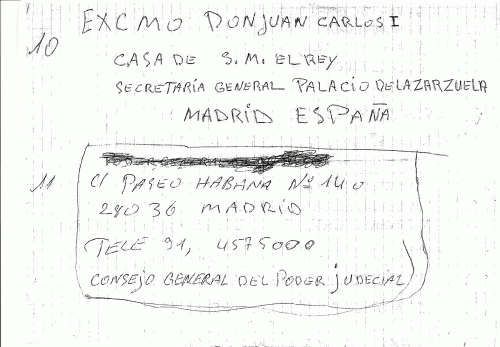 10 EXCMO DON JUAN CARLOS I
CASA DE S.M. EL REY
SECRETARÍA GENERAL PALACIO DE LA ZARZUELA
MADRID ESPAÑA
11 C/ PASEO HABANA Nº 140
28036 MADRID
TELE 91, 4575000
CONSEJO GENERAL DEL PODER JUDECIAL